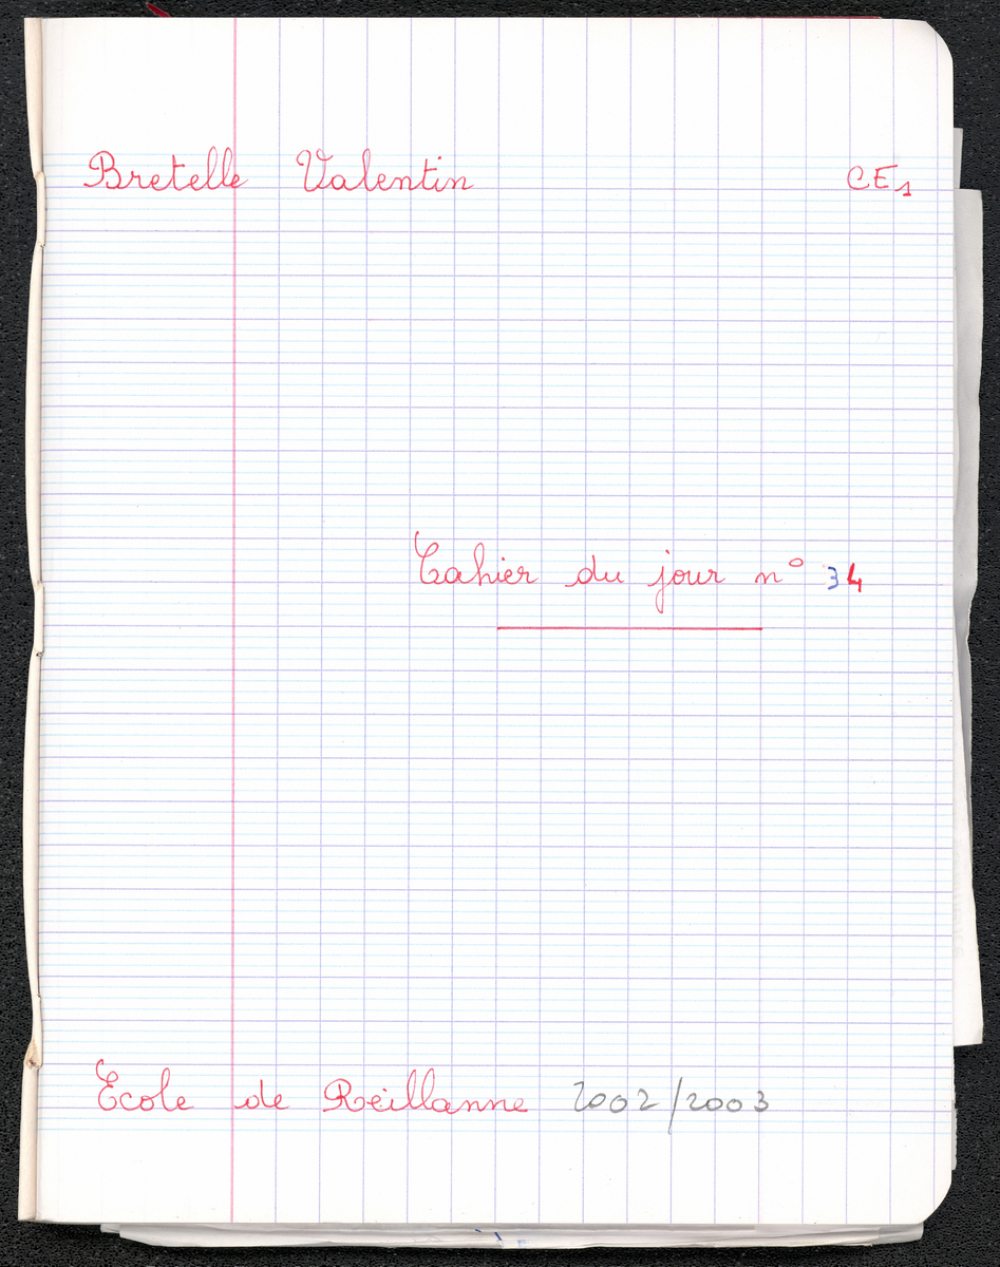 Bretelle Valentin CE1
Cahier du jour n° 34
Ecole de Reillanne 2002/2003